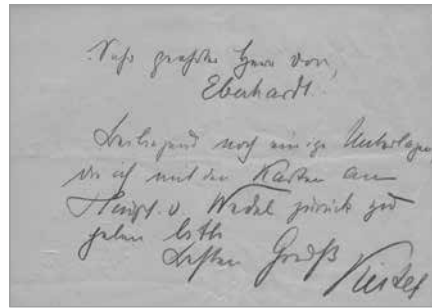 Sehr geehrter Herr von,
Eberhardt.
Beiliegend noch einige Unterlagen,
die ich mit den Karten an
Hauptm. v. Wedel zurück zu
geben bitte
Besten Gruß